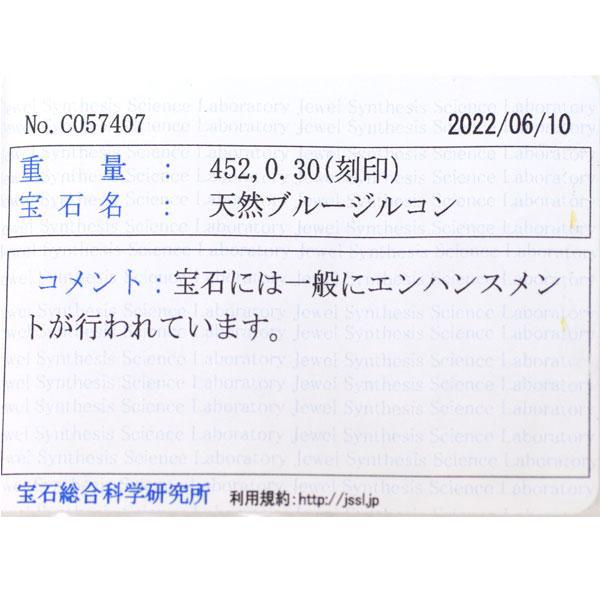 No.C057407 2022/06/10
重量: 452,0.30(刻印)
宝石名: 天然ブルージルコン
コメント:宝石には一般にエンハンスメン
トが行われています。
宝石総合科学研究所 利用規約:http://jssl.jp